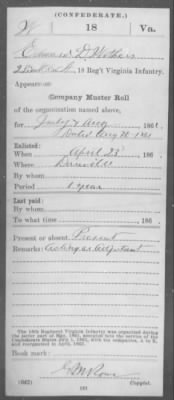 (CONFEDERATE.)
W 18 Va.
D Withers
18 Reg't Virginia Infantry.
Appears on
Company Muster Roll
of the organization named above,
for July & Aug, 1861.
Dated Aug 31 1861
Enlisted:
When April 23, 186
Where Danville
By whom
Period 1 year
Last paid:
By whom
To what time , 186 .
Present or absent Present
Remarks: Acting as Adjutant
The 18th Regiment Virginia Infantry was organized during
the latter part of May, 1861, accepted into the service of the
Confederate States July 1, 1861, with ten companies, A to K,
and reorganized in April, 1862.
Book mark:
(642) Copyist.